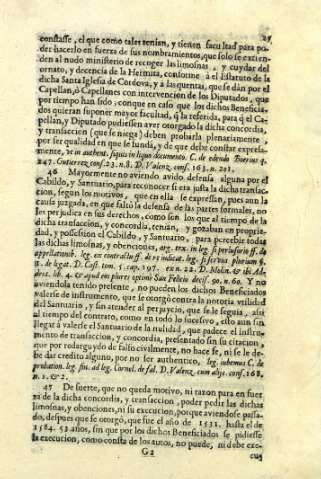 25
constasse, el que como tales tenian, y tienen facultad para po-
der hacerlo en fuerza de sus nombramientos, que solo se extien-
den al nudo ministerio de recoger las limosnas, y cuydar del
ornato, y decencia de la Hermita, conforme à el Estatuto de la
dicha Santa Iglesia de Cordova, y a las quentas, que se dàn por el
Capellan, ò Capellanes con intervencion de los Diputados, que
por tiempo han sido, conque en caso que los dichos Beneficia-
dos quieran suponer mayor facultad, q̃ la referida, para q̃ el Ca-
pellan, y Diputado pudiessen aver otorgado la dicha concordia,
y transaccion (que se niega) deben probarla plenamente, y
por ser qualidad en que se funda, y de que debe constar expressa-
mente, in authent. si quis in liquo documento. C. de edendo
247. Gutierrez cons. 23. n. 8. D. Valenz. cons. 163. n. 201.
46 Mayormente no aviendo avido defensa alguna por el
Cabildo, y Santuario, para reconocer si era justa la dicha transac-
cion, segun los motivos, que en ella se expressan, pues aun la
causa juzgada, en que faltò la defensa de las partes formales, no
les perjudica en sus derechos, como son los que al tiempo de la
dicha transaccion, y concordia, tenian, y gozaban en proprie-
dad, y possession el Cabildo, y Santuario, para percebir todas
las dichas limosnas, y obenciones, arg. tex. in leg. si perlusorio ff. de
appellationib. leg. ex contractu ff. de re iudicat. leg. si servus plurium §.
8. de legat. D. Cast. tom. 5. cap. 197. ex n. 22. D. Molin. & ibi Ad-
dent. lib. 4. & apud eos plures optimè San Felicio decis. 90. n. 60. Y no
aviendola tenido presente, no pueden los dichos Beneficiados
valerse de instrumento, que se otorgò contra la notoria utilidad
del Santuario, y sin atender al perjuycio, que se le seguia, assi
al tiempo del contrato, como en todo lo sucesivo, esto aun sin
llegar à valerse el Santuario de la nulidad, que padece el instru-
mento de transaccion, y concordia, presentado sin su citacion,
que por redarguydo de falso civilmente, no hace fè, ni se le de-
be dar credito alguno, por no ser authentico, leg. iubemus C. de
probation. leg. fin. ad leg. Cornel. de fal. D. Valenz. cum alijs cons. 168.
n. 1. & 2.
47 De suerte, que no queda motivo, ni razon para en fuer-
za de la dicha concordia, y transaccion, poder pedir las dichas
limosnas, y obenciones, ni su execucion, porque aviendose passa-
do, despues que se otorgò, que fue el año de 1531. hasta el de
1584. 53 años, sin que por los dichos Beneficiados se pidiesse
la execucion, como consta de los autos, no puede, ni debe exe-
G2
cu-